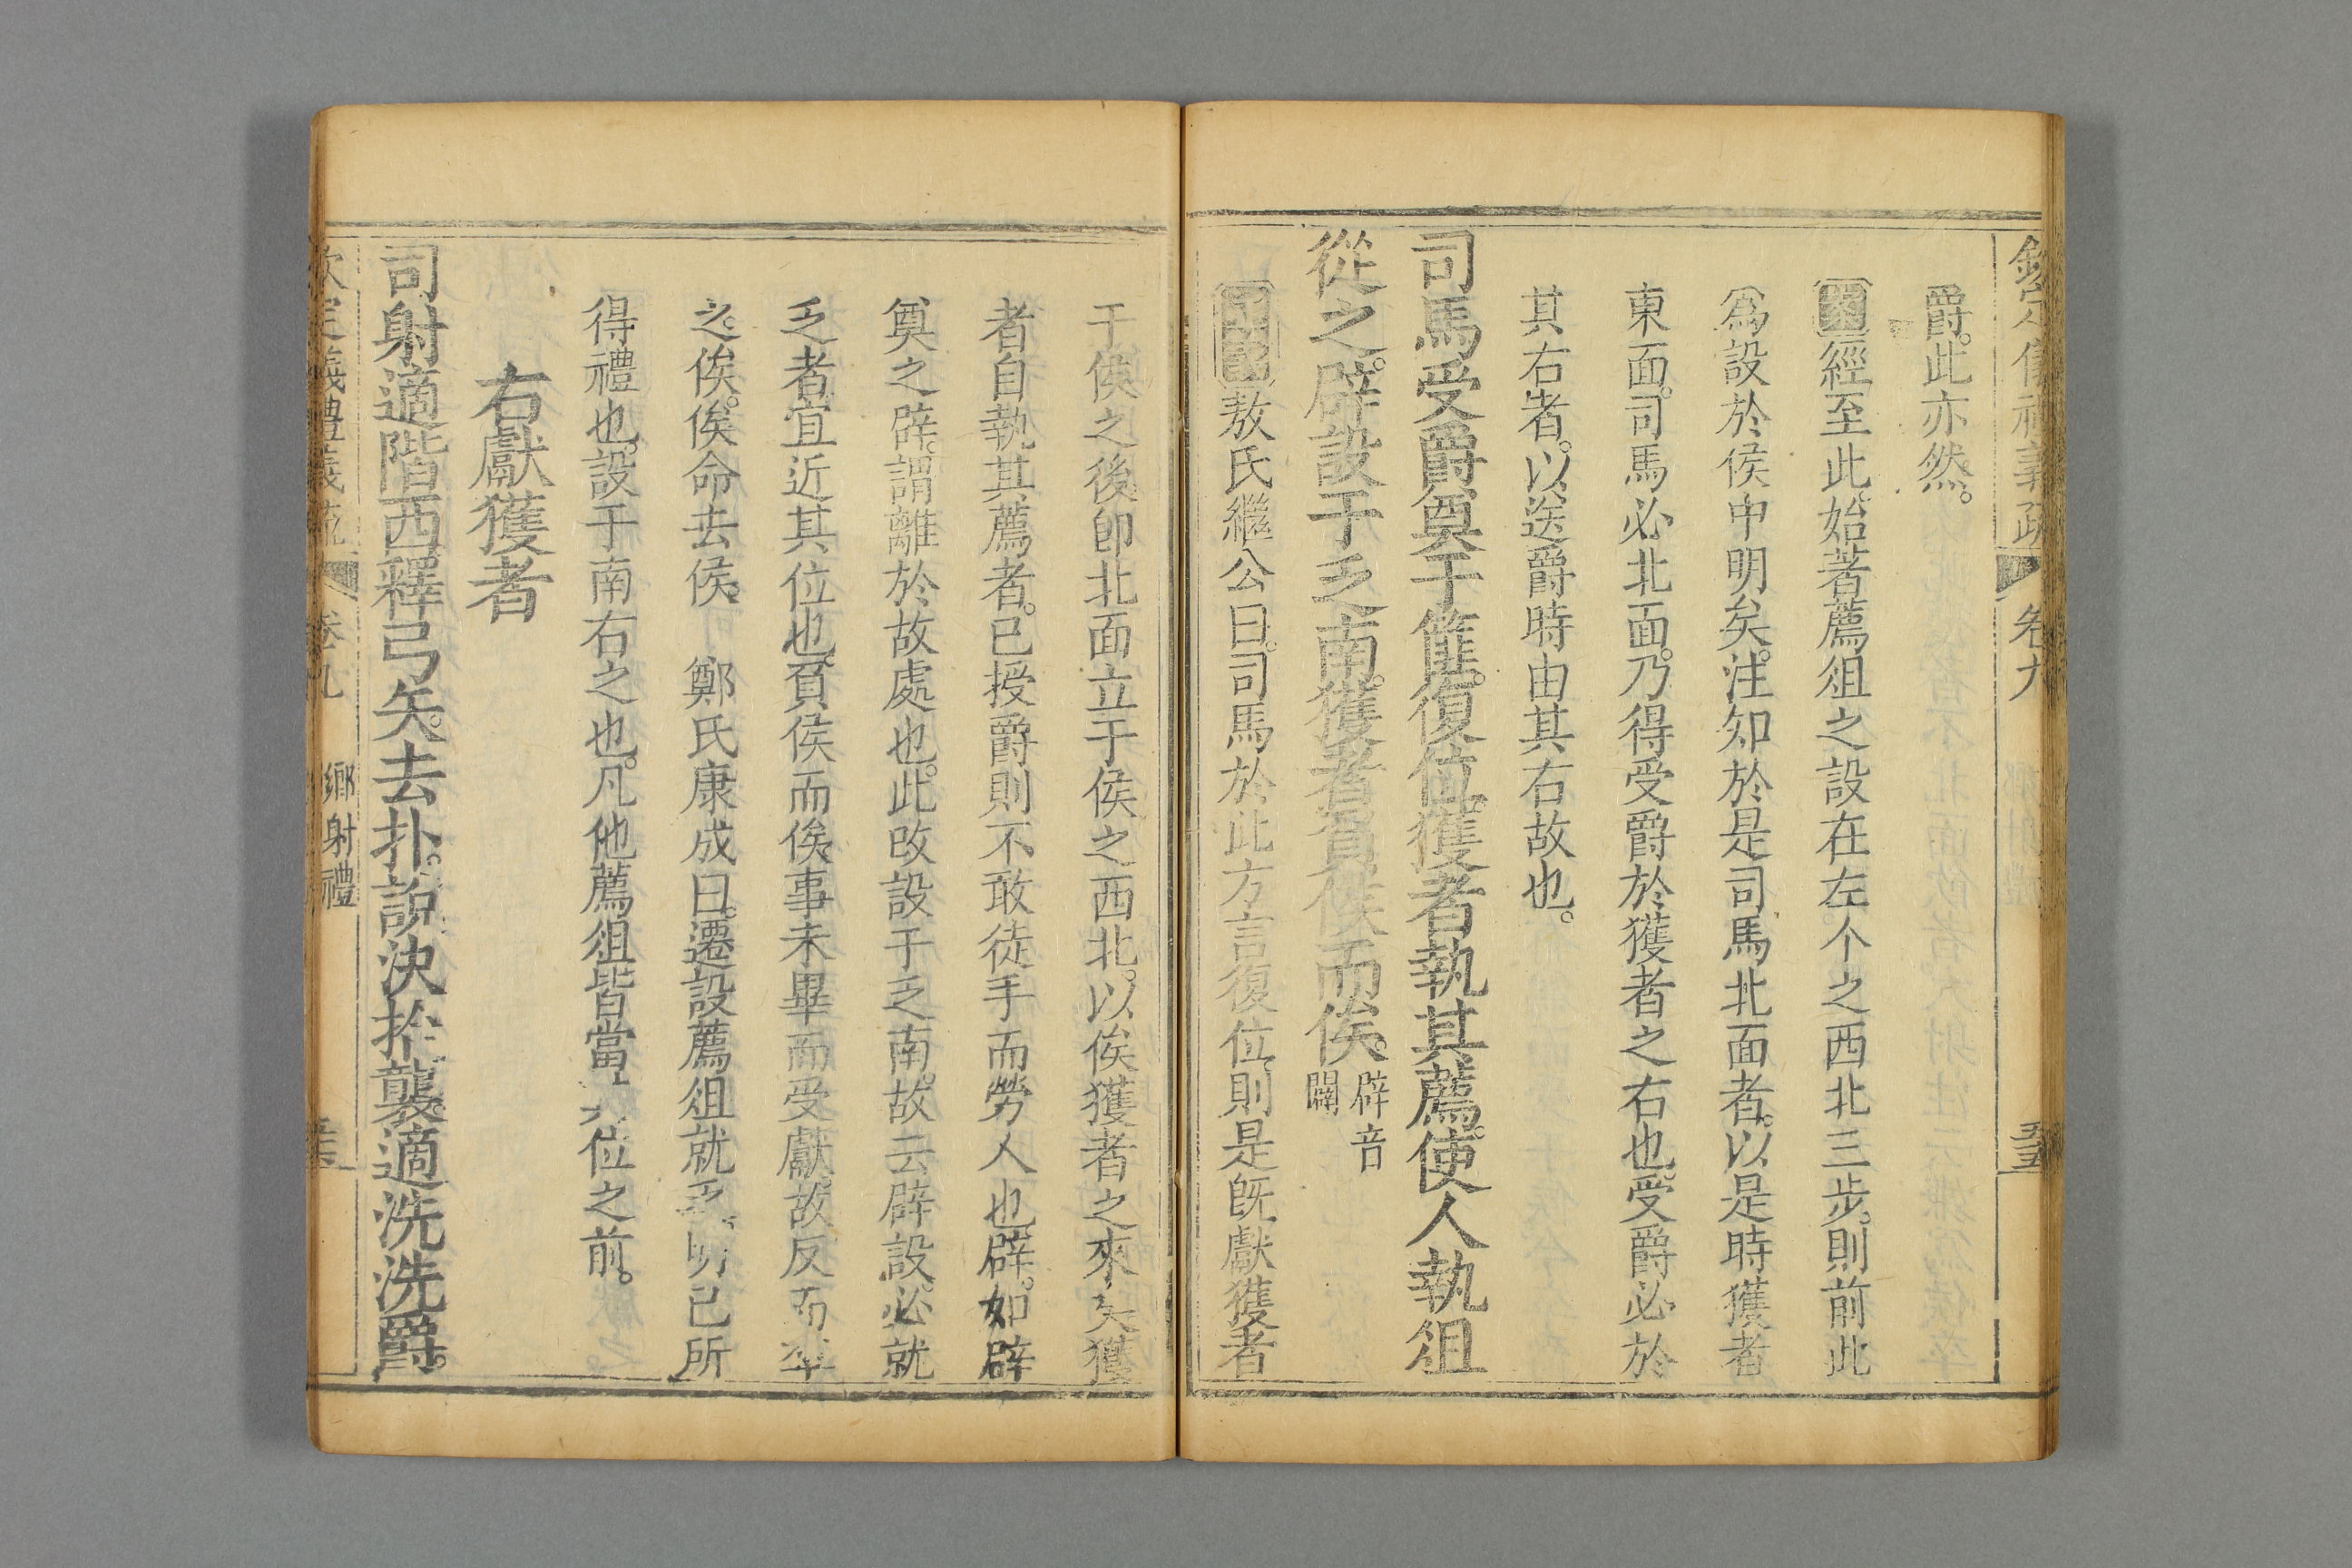 欽定儀禮義疏 卷九 五五
爵。此亦然。
案經至此。始著薦俎之設在左个之西北三步。則前此
為設於侯中明矣。注知於是司馬北面者。以是時獲者
東面。司馬必北面。乃得受爵於獲者之右也。受爵必於
其右者。以送爵時由其右故也。
司馬受爵。奠于篚。復位。獲者執其薦。使人執俎
從之。辟設于乏南。獲者負侯而俟。辟音
闢
敖氏繼公曰。司馬於此方言復位。則是旣獻獲者
于侯之後。卽北面立于侯之西北。以俟獲者之來 矣獲
者自執其薦者。已授爵則不敢徒手而勞人也。辟。如辟
奠之辟。謂離於故處也。此改設于乏南。故云辟設。必就
乏者。宜近其位也。負侯而俟。事未畢而受獻。故反而卒
之。俟。俟命去侯。 鄭氏康成曰。遷設薦俎就乏。明已所
得禮也。設于南。右之也。凡他薦俎皆當 位之前。
右獻獲者
司射適階西。釋弓矢。去扑。說決拾。襲。適洗。洗爵。
欽定儀禮義疏 卷九 鄉射禮